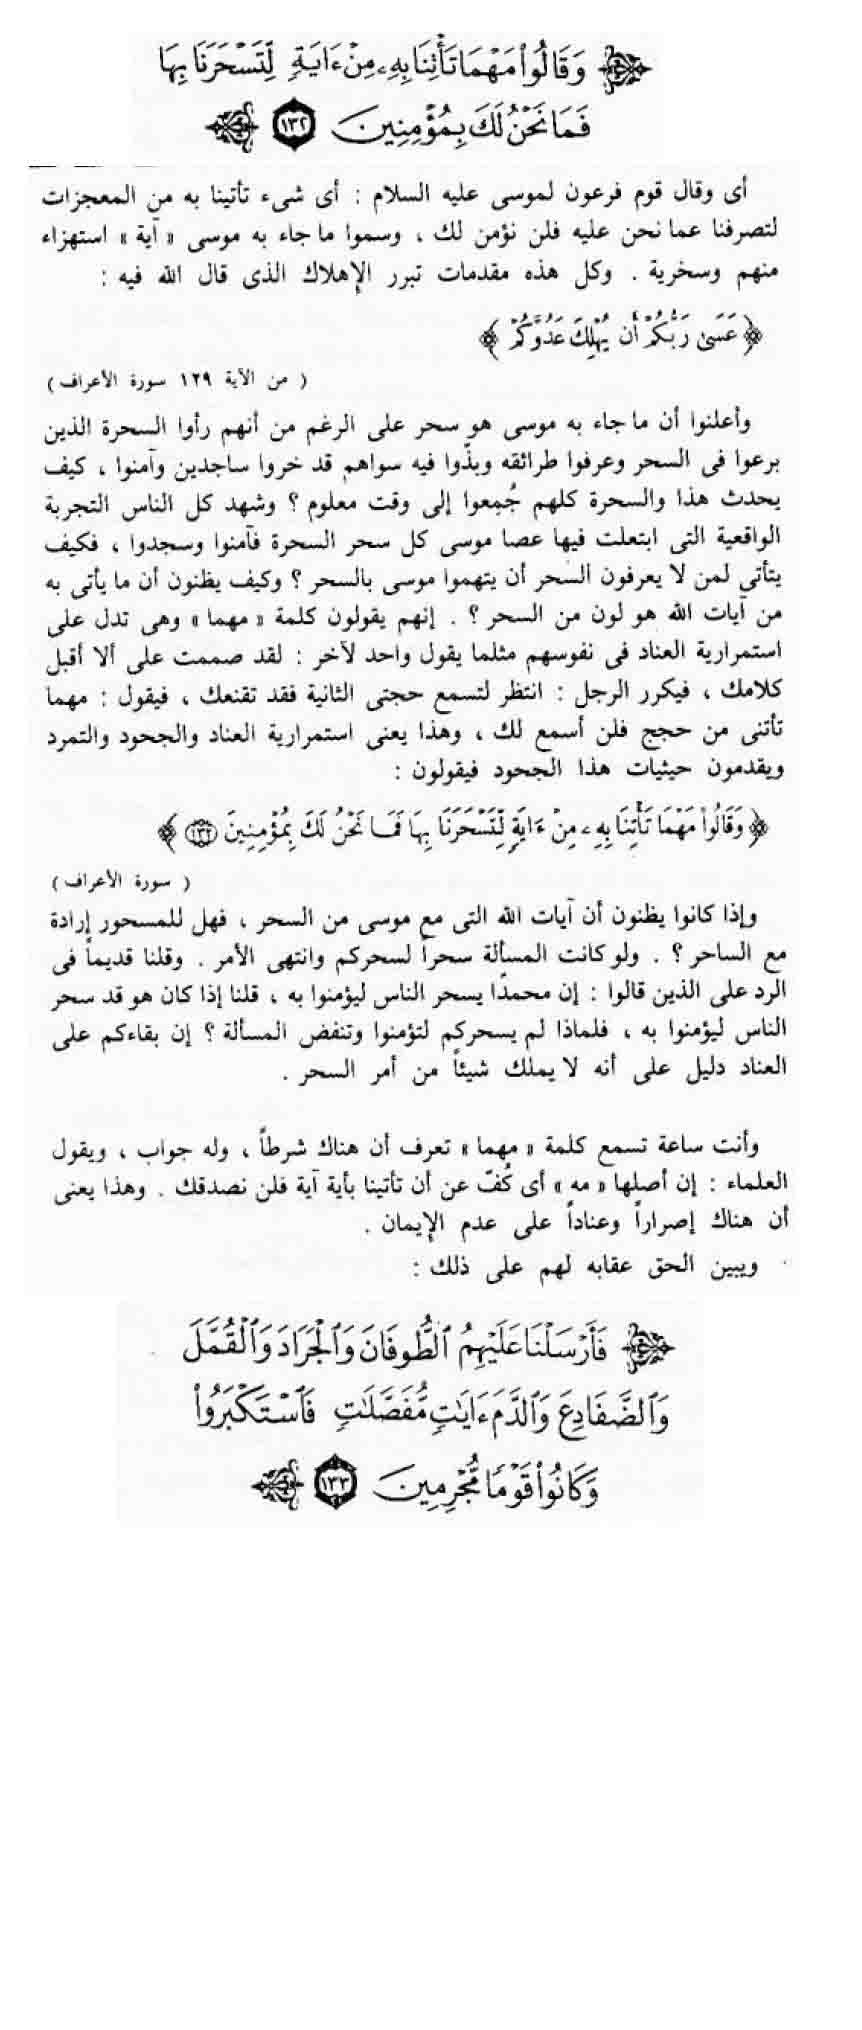 ﴿ وَقَالُوا۟ مَهْمَا تَأْتِنَا بِهِۦ مِنْ ءَايَةٍ لِّتَسْحَرَنَا بِهَا
فَمَا نَحْنُ لَكَ بِمُؤْمِنِينَ ١٣٢ ﴾
أى وقال قوم فرعون لموسى عليه السلام : أى شىء تأتينا به من المعجزات
لتصرفنا عما نحن عليه فلن نؤمن لك ، وسموا ما جاء به موسى « آية » استهزاء
منهم وسخرية . وكل هذه مقدمات تبرر الإهلاك الذى قال الله فيه :
﴿ عَسَىٰ رَبُّكُمْ أَن يُهْلِكَ عَدُوَّكُمْ ﴾
( من الآية ١٢٩ سورة الأعراف )
وأعلنوا أن ما جاء به موسى هو سحر على الرغم من أنهم رأوا السحرة الذين
برعوا فى السحر وعرفوا طرائقه وبذّوا فيه سواهم قد خروا ساجدين وآمنوا ، كيف
يحدث هذا والسحرة كلهم جُمِعوا إلى وقت معلوم ؟ وشهد كل الناس التجربة
الواقعية التى ابتعلت فيها عصا موسى كل سحر السحرة فآمنوا وسجدوا ، فكيف
يتأتى لمن لا يعرفون السحر أن يتهموا موسى بالسحر ؟ وكيف يظنون أن ما يأتى به
من آيات الله هو لون من السحر ؟ . إنهم يقولون كلمة « مهما » وهى تدل على
استمرارية العناد فى نفوسهم مثلما يقول واحد لآخر : لقد صممت على ألا أقبل
كلامك ، فيكرر الرجل : انتظر لتسمع حجتى الثانية فقد تقنعك ، فيقول : مهما
تأتنى من حجج فلن أسمع لك ، وهذا يعنى استمرارية العناد والجحود والتمرد
ويقدمون حيثيات هذا الجحود فيقولون :
﴿ وَقَالُوا۟ مَهْمَا تَأْتِنَا بِهِۦ مِنْ ءَايَةٍ لِّتَسْحَرَنَا بِهَا فَمَا نَحْنُ لَكَ بِمُؤْمِنِينَ ١٣٢ ﴾
( سورة الأعراف )
وإذا كانوا يظنون أن آيات الله التى مع موسى من السحر ، فهل للمسحور إرادة
مع الساحر ؟ . ولو كانت المسألة سحراً لسحركم وانتهى الأمر . وقلنا قديماً فى
الرد على الذين قالوا : إن محمدًا يسحر الناس ليؤمنوا به ، قلنا إذا كان هو قد سحر
الناس ليؤمنوا به ، فلماذا لم يسحركم لتؤمنوا وتنفض المسألة ؟ إن بقاءكم على
العناد دليل على أنه لا يملك شيئاً من أمر السحر .
وأنت ساعة تسمع كلمة « مهما » تعرف أن هناك شرطاً ، وله جواب ، ويقول
العلماء : إن أصلها « مه » أى كُفّ عن أن تأتينا بأية آية فلن نصدقك . وهذا يعنى
أن هناك إصراراً وعناداً على عدم الإيمان .
ويبين الحق عقابه لهم على ذلك :
﴿ فَأَرْسَلْنَا عَلَيْهِمُ ٱلطُّوفَانَ وَٱلْجَرَادَ وَٱلْقُمَّلَ
وَٱلضَّفَادِعَ وَٱلدَّمَ ءَايَٰتٍ مُّفَصَّلَٰتٍ فَٱسْتَكْبَرُوا۟
وَكَانُوا۟ قَوْمًا مُّجْرِمِينَ ١٣٣ ﴾